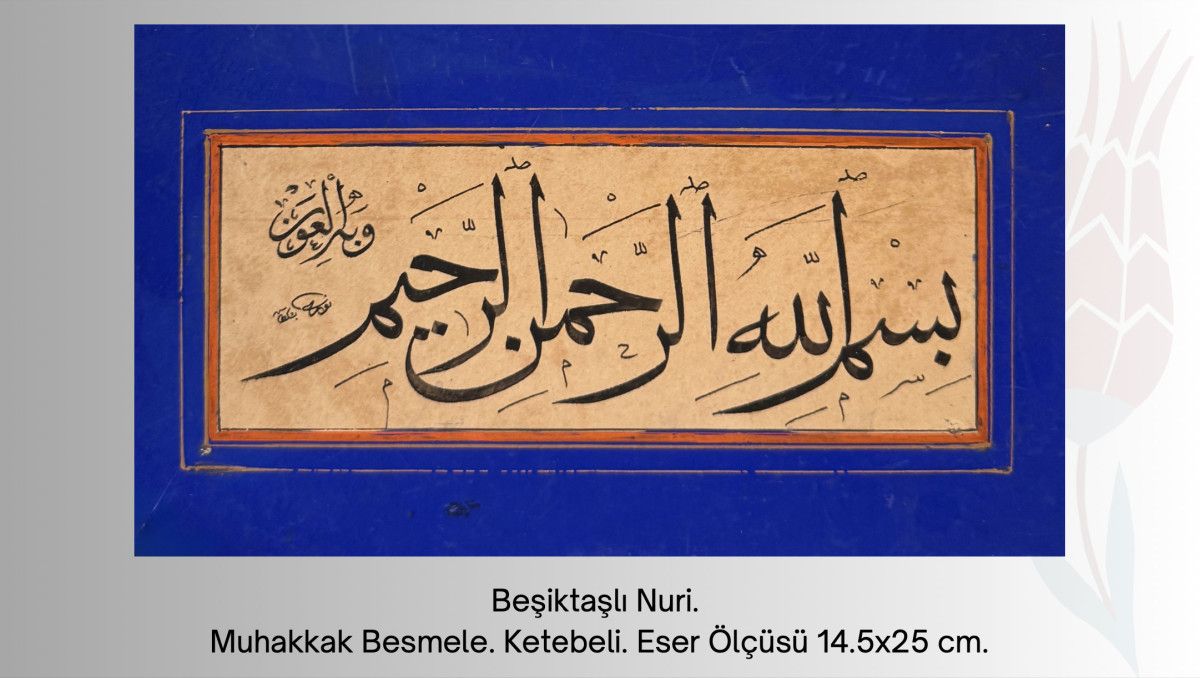 بسم الله الرحمن الرحيم
وبه العون
Beşiktaşlı Nuri.
Muhakkak Besmele. Ketebeli. Eser Ölçüsü 14.5x25 cm.